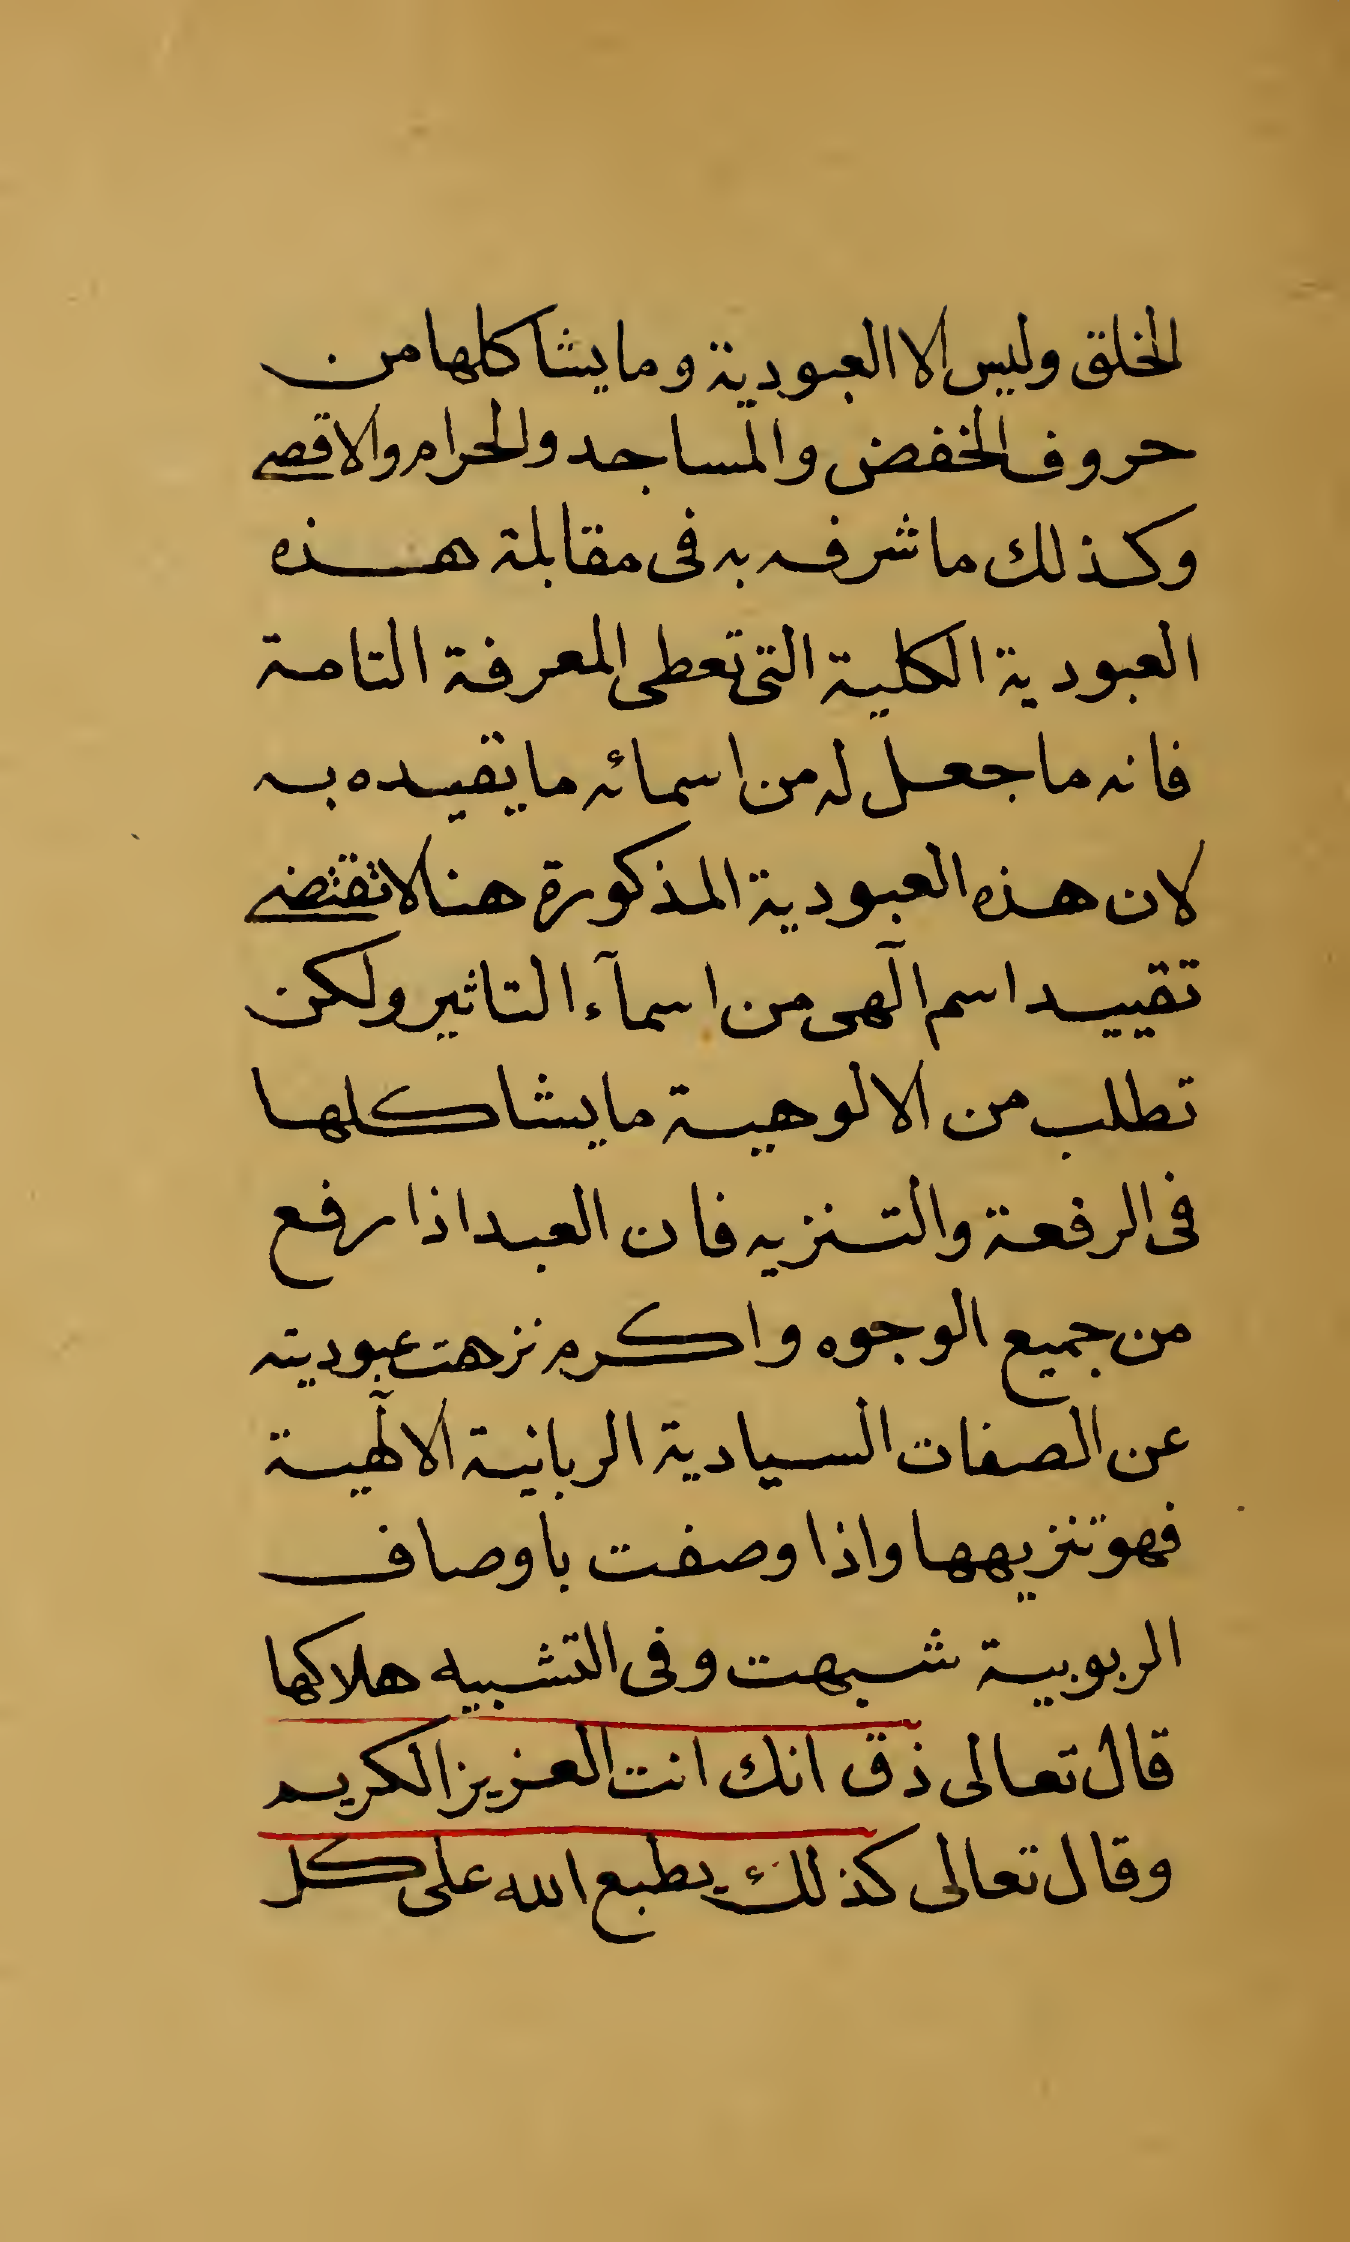 الخلق وليس الا العبودية وما يشاكلها من
حروف الخفض والمساجد والحرام والاقصى
وكذلك ما شرفه به فى مقابلة هذه
العبودية الكلية التى تعطى المعرفة التامة
فانه ما جعل له من اسمائه ما يقيده به
لان هذه العبودية المذكورة هنا لا تقتضى
تقييد اسم آلهى من اسمآء التاثير ولكن
تطلب من الالوهية ما يشاكلها
فى الرفعة والتنزيه فان العبد اذا رفع
من جميع الوجوه واكرم نزهت عبوديته
عن الصفات السيادية الربانية الالٓهية
فهو تنزيهها واذا وصفت باوصاف
الربوبية شبهت وفى التشبيه هلاكها
قال تعالى ذق انك انت العزيز الكريم
وقال تعالى كذلك يطبع الله على كل